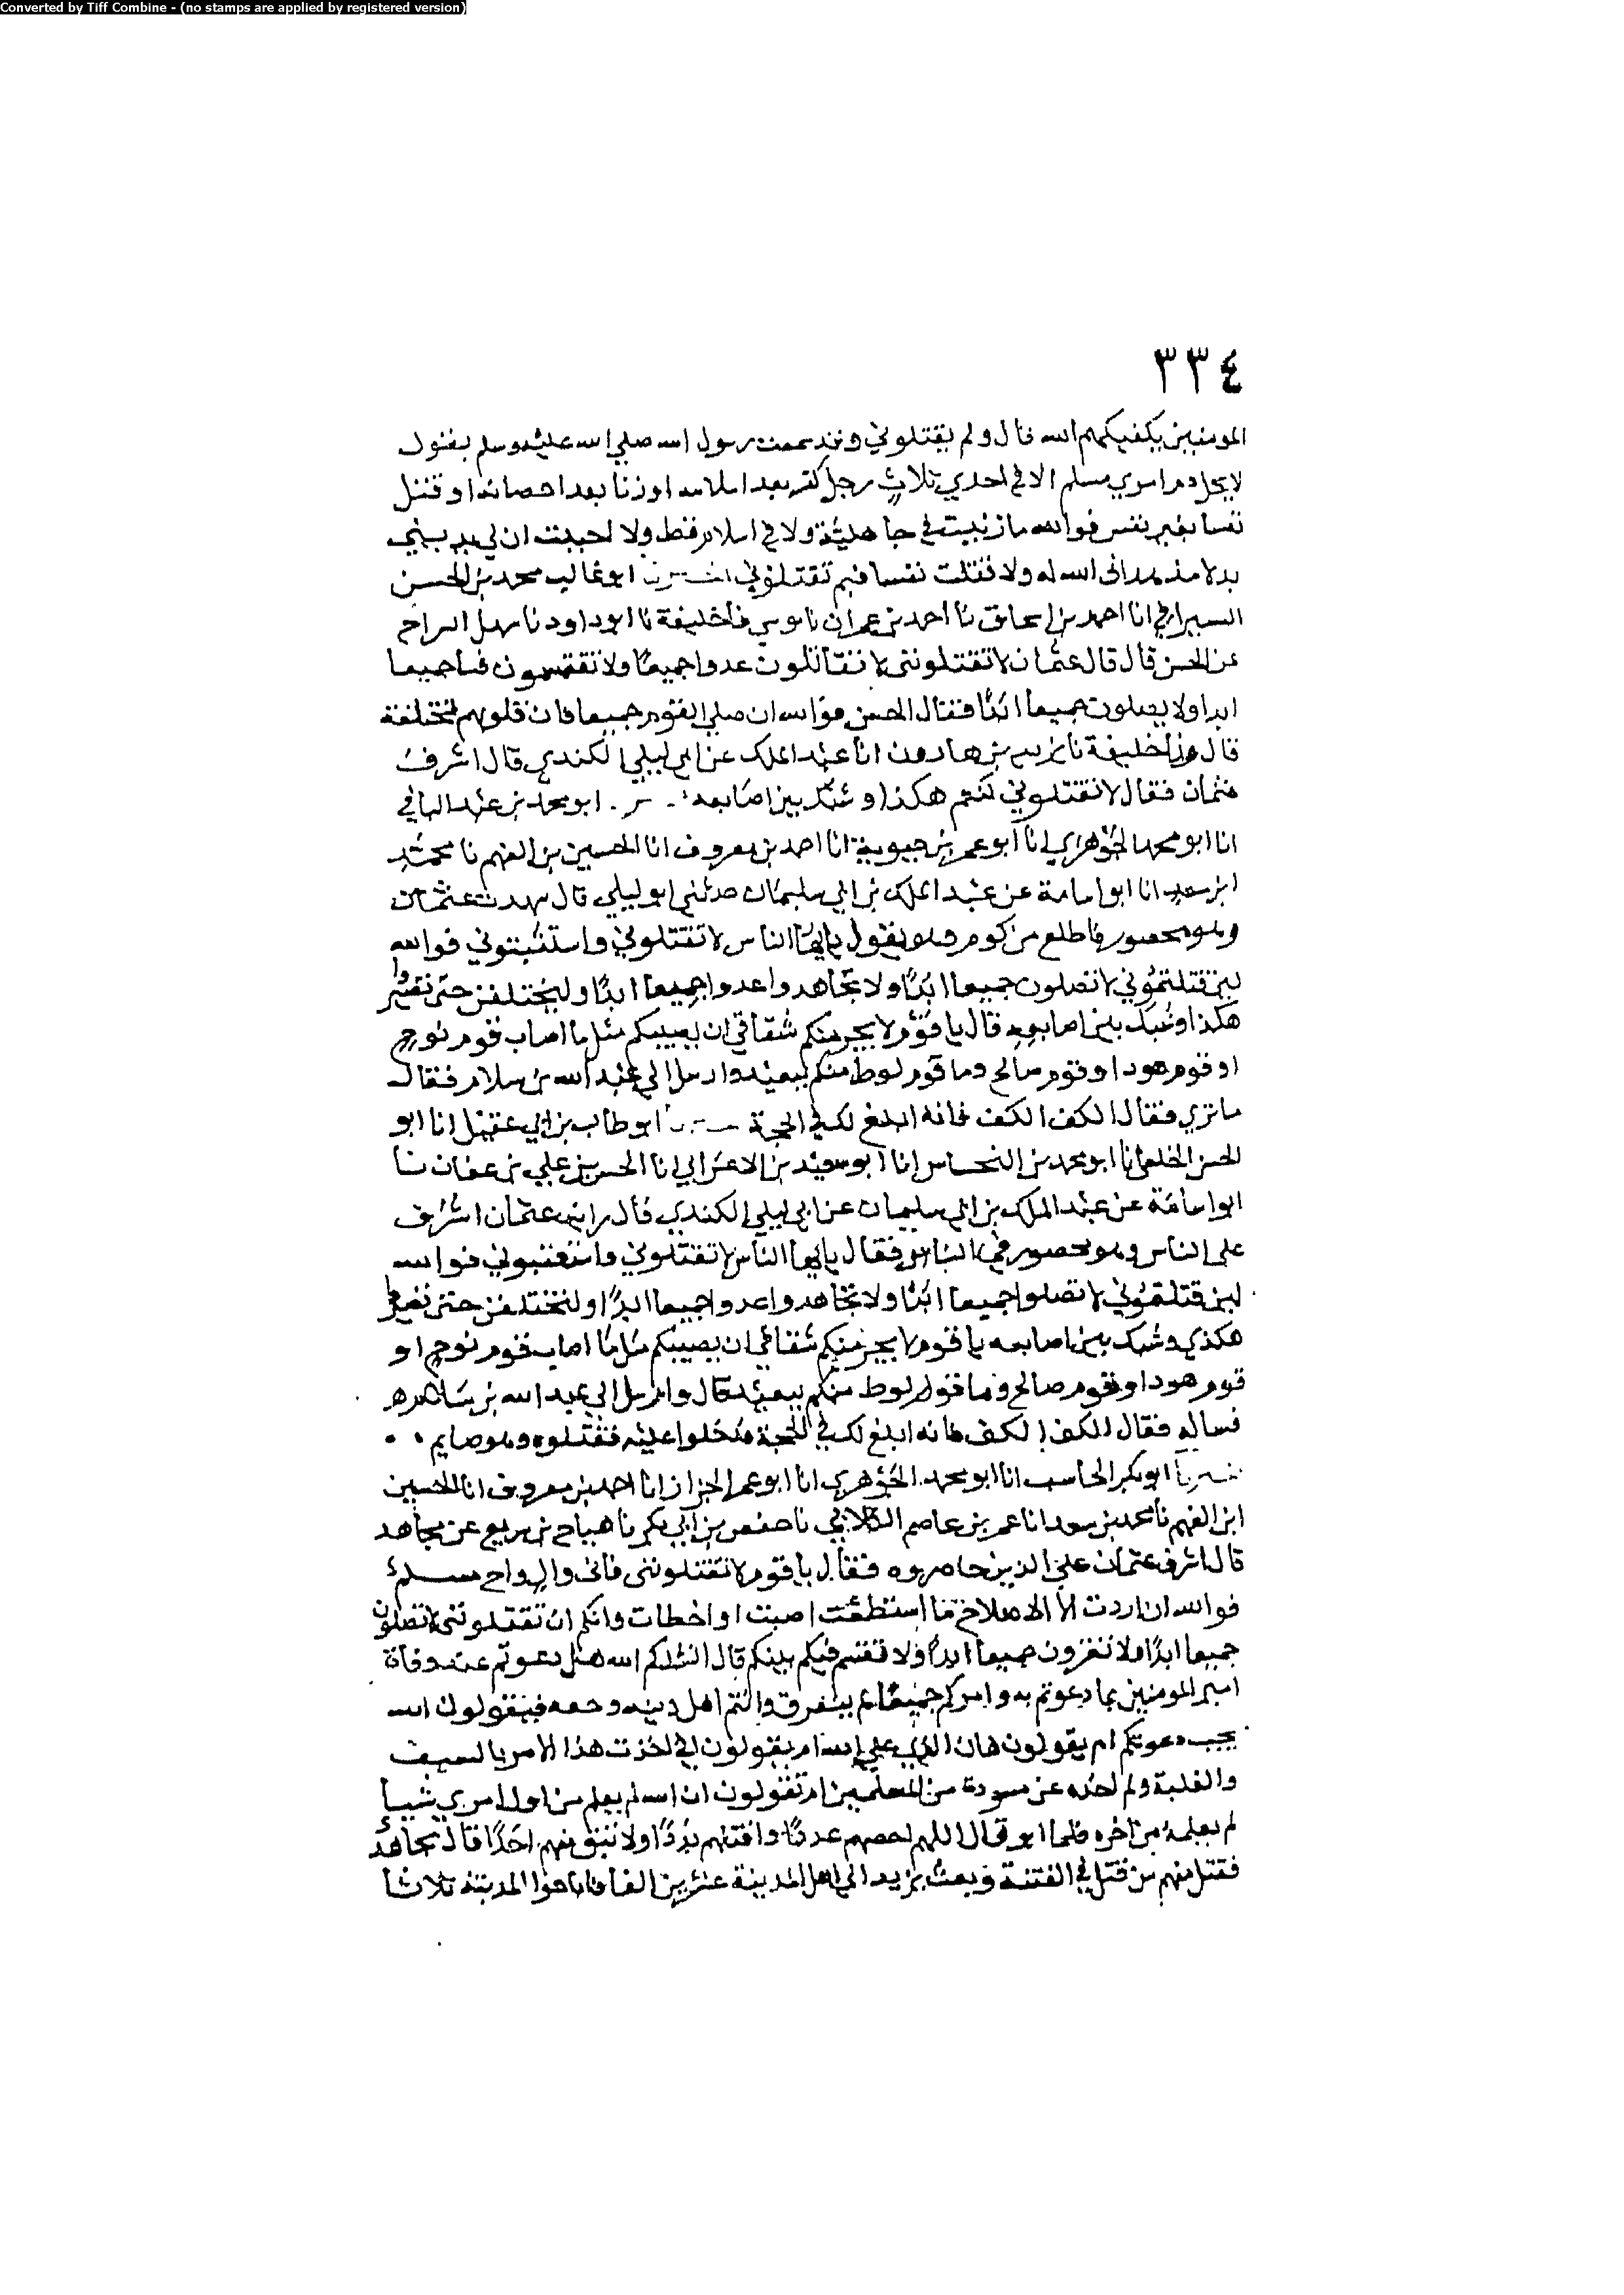 Converted by Tiff Combine - (no stamps are applied by registered version)
٣٣٤
المومنين يكفيكهم الله قال ولم يقتلوني وقد سمعت رسول الله صلى الله عليه وسلم يقول
لا يحل دم امرئ مسلم الا في احدي ثلاث رجل كفر بعد اسلامه او زنا بعد احصانه او قتل
نفسا بغير نفس فوالله ما زنيت في جاهلية ولا في اسلام قط ولا احببت ان لي بديني
بدلا منذ هداني الله له ولا قتلت نفسا فبم تقتلوني اخبرنا ابو غالب محمد بن الحسن
السيرافي انا احمد بن اسحاق نا احمد بن عمران نا موسى نا خليفة نا ابو داود نا سهل السراج
عن الحسن قال قال عثمان لا تقتلونني لا تقاتلون عدوا جميعا ولا تقتسمون فيا جميعا
ابدا ولا يصلون جميعا ابدا فقال الحسن فوالله ان صلي القوم جميعا فان قلوبهم لمختلفة
قال ونا خليفة نا يزيد بن هارون انا عبد الملك عن ابي ليلي الكندي قال اشرف
عثمان فقال لا تقتلوني لكنتم هكذا وشبك بين اصابعه ابو محمد بن عبد الباقي
انا ابو محمد الجوهري انا ابو عمر بن حيوية انا احمد بن معروف انا الحسين بن الفهم نا محمد
ابن سعد انا ابو اسامة عن عبد الملك بن ابي سليمان حدثني ابو ليلي قال شهدت عثمان
وهو محصور فاطلع من كو وهو يقول يا ايها الناس لا تقتلوني واستتيبوني فوالله
لين قتلتموني لا تصلون جميعا ابدا ولا تجاهدوا عدوا جميعا ابدا ولتختلفن حتى تصيروا
هكذا وشبك بين اصابعه قال يا قوم لا يجرمنكم شقاقي ان يصيبكم مثل ما اصاب قوم نوح
او قوم هود او قوم صالح وما قوم لوط منكم ببعيد وارسل الي عبد الله بن سلام فقال
ما تري فقال الكف الكف فانه ابلغ لك في الحجة ابو طالب بن ابي عقيل انا ابو
الحسن الخلعي انا ابو محمد بن النحاس انا ابو سعيد بن الاعرابي انا الحسن بن علي بن عفان نا
ابو اسامة عن عبد الملك بن ابي سليمان عن ابي ليلي الكندي قال رايت عثمان اشرف
على الناس وهو محصور فقال يا ايها الناس لا تقتلوني واستعتبوني فوالله
لين قتلتموني لا تصلوا جميعا ابدا ولا تجاهدوا عدوا جميعا ابدا ولتختلفن حتى تصيروا
هكذي وشبك بين اصابعه يا قوم لا يجرمنكم شقاقي ان يصيبكم مثل ما اصاب قوم نوح او
قوم هود او قوم صالح وما قوم لوط منكم ببعيد قال وارسل الي عبد الله بن سلام
فساله فقال الكف الكف فانه ابلغ لك في الحجة فدخلوا عليه فقتلوه وهو صايم
ابو بكر الحاسب انا ابو محمد الجوهري انا ابو عمر الخزاز انا احمد بن معروف انا الحسين
ابن الفهم نا محمد بن سعد انا عمر بن عاصم الكلابي نا حفص بن ابي بكر نا هياج بن سريع عن مجاهد
قال اشرف عثمان على الذين حاصروه فقال يا قوم لا تقتلونني فاني وال واخ مسلم
فوالله ان اردت الا الاصلاح ما استطعت اصبت او اخطات وانكم ان تقتلونني لا تصلون
جميعا ابدا ولا تغزون جميعا ابدا ولا تقتسم فيكم بينكم قال انشدكم الله هل دعوتم عند وفاة
امير المومنين بما دعوتم به وامركم جميعا لم يتفرق وانتم اهل دينه وحقه فيقولون الله
يجب دعوتكم ام يقولون هان الدين على الله ام يقولون اني اخذت هذا الامر بالسيف
والغلبة ولم اخذه عن مشورة من المسلمين ام تقولون ان الله لم يعلم من اول امري شيا
لم يعلمه من اخره فلما ابو قال اللهم احصهم عددا واقتلهم بددا ولا تبق منهم احدا قال مجاهد
فقتل منهم من قتل في الفتنة وبعث يزيد الي اهل المدينة عشرين الفا فاباحوا المدينة ثلاثا